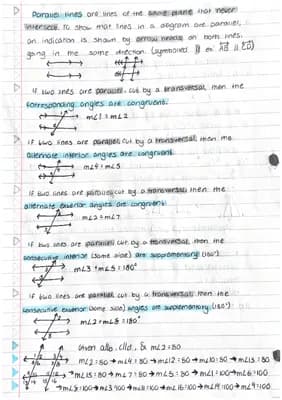 Parallel lines are lines of the same plane that never
intersect. To show that lines in a diagram are parallel,
an indication is shown by arrow heads on both lines
going in the same direction (symbolized || ex: AB || CD)
if two lines are parallel cut by a transversal, then the
corresponding angles are congruent.
m∠1 = m∠2
if two lines are parallel cut by a transversal then the
alternate interior angles are congruent.
m∠4 = m∠5
if two lines are parallel cut by a transversal then the
alternate exterior angles are congruent.
m∠2 = m∠7
if two lines are parallel cut by a transversal, then the
consecutive interior (same side) are supplementary (180°)
m∠3 + m∠5 = 180°
if two lines are parallel cut by a transversal then the
consecutive exterior (same side) angles are supplementary (180°)
Given a||b, c||d, & m∠2 = 80
m∠2 = 80 → m∠4 = 80 → m∠12 = 80 → m∠10 = 80 → m∠13 = 80